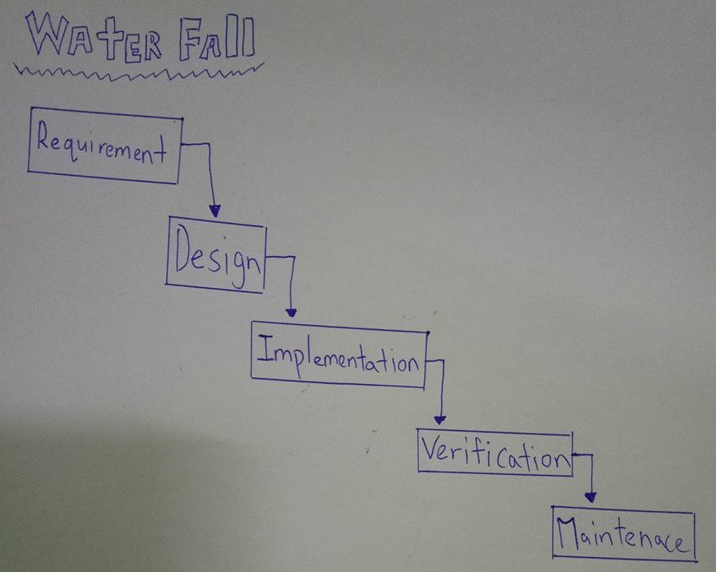 WATER FAll
Requirement
Design
Implementation
Verification
Maintenace